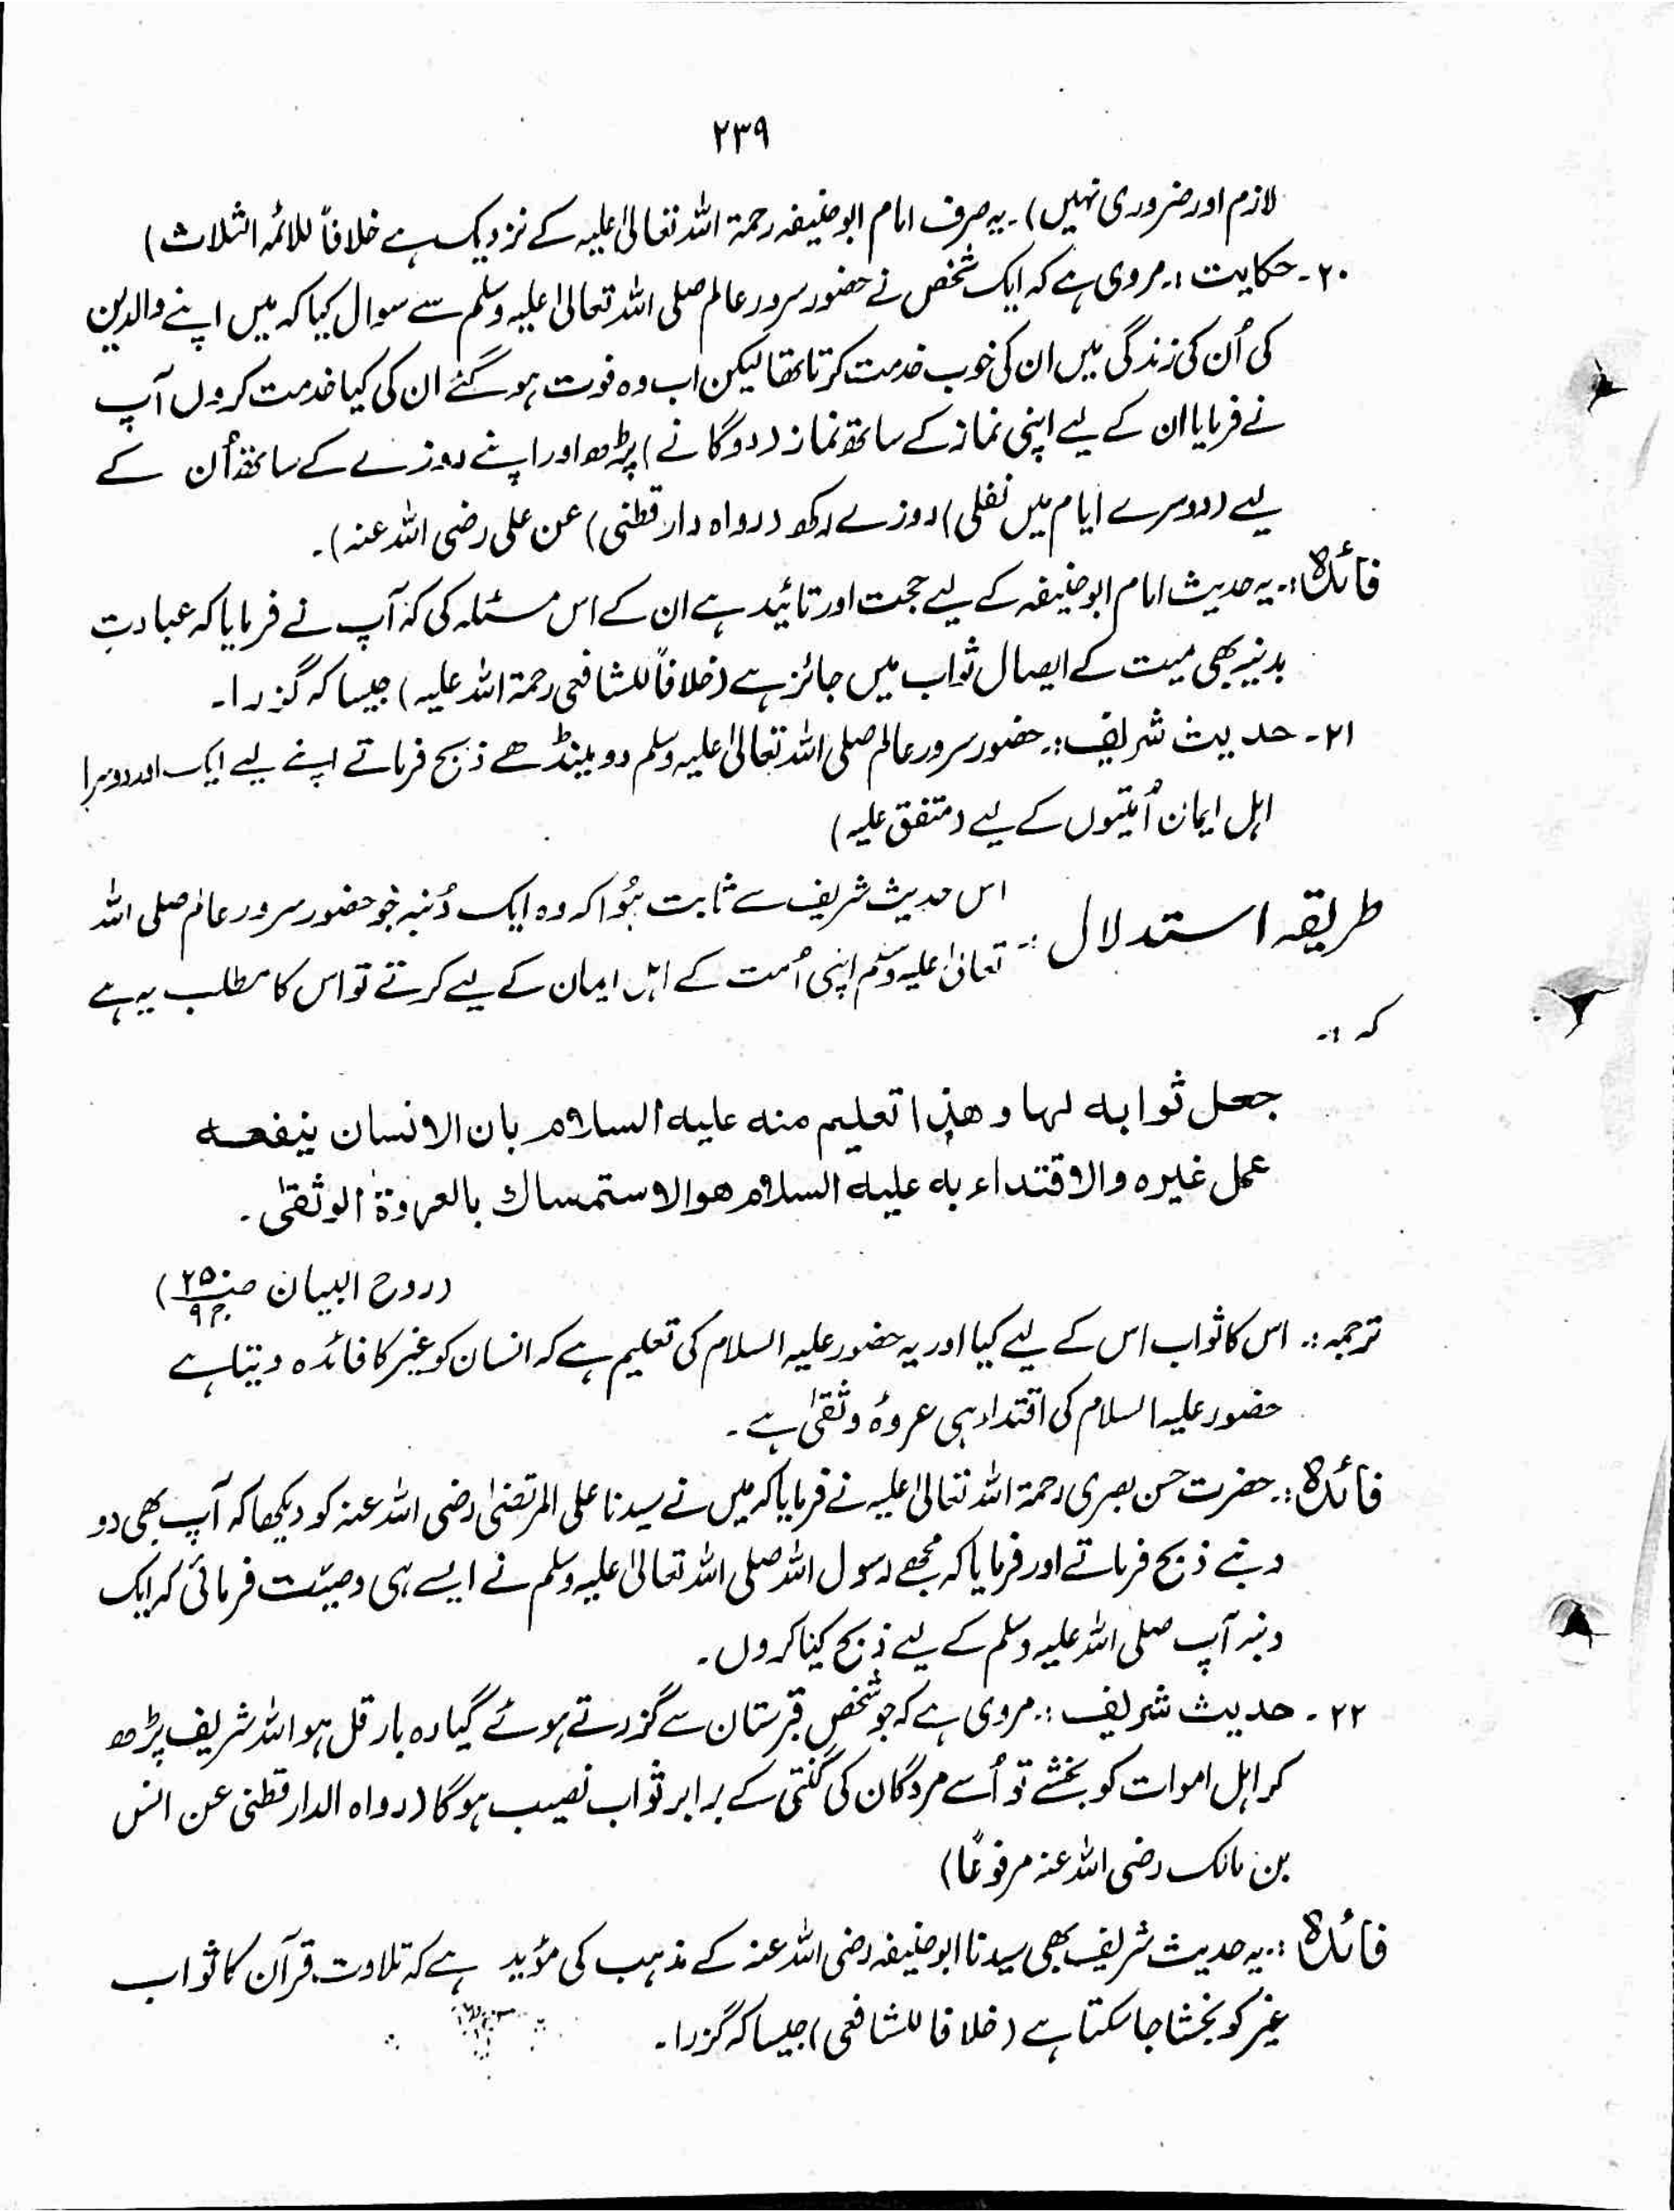 ۲۳۹
لازم اور ضروری نہیں)۔ یہ صرف امام ابوحنیفہ رحمۃ اللہ تعالیٰ علیہ کے نزدیک ہے خلافاً للائمہ الثلاث)
۲۰۔ حکایت :۔ مروی ہے کہ ایک شخص نے حضور سرور عالم صلی اللہ تعالیٰ علیہ وسلم سے سوال کیا کہ میں اپنے والدین
کی اُن کی زندگی میں ان کی خوب خدمت کرتا تھا لیکن اب وہ فوت ہو گئے ان کی کیا خدمت کروں آپ
نے فرمایا ان کے لیے اپنی نماز کے ساتھ نماز (دوگانے) پڑھو اور اپنے روزے کے ساتھ اُن کے
لیے (دوسرے ایام میں نفلی) روزے رکھو (رواہ دارقطنی) عن علی رضی اللہ عنہ)۔
فائدہ :۔ یہ حدیث امام ابوحنیفہ کے لیے حجت اور تائید ہے ان کے اس مسئلہ کی کہ آپ نے فرمایا کہ عبادتِ
بدنیہ بھی میت کے ایصال ثواب میں جائز ہے (خلافاً للشافعی رحمۃ اللہ علیہ) جیسا کہ گزرا۔
۲۱۔ حدیث شریف :۔ حضور سرور عالم صلی اللہ تعالیٰ علیہ وسلم دو مینڈھے ذبح فرماتے اپنے لیے ایک اور دوسرا
اہل ایمان اُمتیوں کے لیے (متفق علیہ)
طریقہ استدلال :۔ اس حدیث شریف سے ثابت ہُوا کہ وہ ایک دُنبہ جو حضور سرور عالم صلی اللہ
تعالیٰ علیہ وسلم اپنی اُمت کے اہل ایمان کے لیے کرتے تو اس کا مطلب یہ ہے
کہ :۔
جعل ثوابه لها و هذا تعليم منه عليه السلام بان الانسان ينفعه
عمل غيره والاقتداء به عليه السلام هو الاستمساك بالعروة الوثقىٰ۔
(روح البیان ص۲۵۰ ج۹)
ترجمہ :۔ اس کا ثواب اس کے لیے کیا اور یہ حضور علیہ السلام کی تعلیم ہے کہ انسان کو غیر کا فائدہ دیتا ہے
حضور علیہ السلام کی اقتداء ہی عروۂ وثقیٰ ہے۔
فائدہ :۔ حضرت حسن بصری رحمۃ اللہ تعالیٰ علیہ نے فرمایا کہ میں نے سیدنا علی المرتضیٰ رضی اللہ عنہ کو دیکھا کہ آپ بھی دو
دنبے ذبح فرماتے اور فرمایا کہ مجھے رسول اللہ صلی اللہ تعالیٰ علیہ وسلم نے ایسے ہی وصیّت فرمائی کہ ایک
دنبہ آپ صلی اللہ علیہ وسلم کے لیے ذبح کیا کروں۔
۲۲۔ حدیث شریف :۔ مروی ہے کہ جو شخص قبرستان سے گزرتے ہوئے گیارہ بار قل ہو اللہ شریف پڑھ
کر اہل اموات کو بخشے تو اُسے مردگان کی گنتی کے برابر ثواب نصیب ہوگا (رواہ الدارقطنی عن انس
بن مالک رضی اللہ عنہ مرفوعًا)
فائدہ :۔ یہ حدیث شریف بھی سیدنا ابوحنیفہ رضی اللہ عنہ کے مذہب کی مؤید ہے کہ تلاوت قرآن کا ثواب
غیر کو بخشا جا سکتا ہے (خلافا للشافعی) جیسا کہ گزرا۔